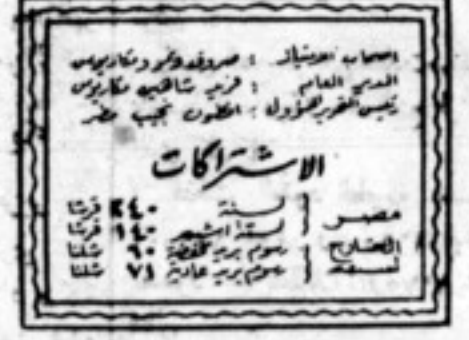 اصحاب الامتياز : صروف ونمر ومكاريوس
المدير العام : فريد شاهين مكاريوس
رئيس التحرير المسؤول : انطون نجيب مطر
الاشتراكات
مصر { لسنة ٢٤٠ قرشا
لستة اشهر ١٤٠ قرشا
الخارج لسنة { رسوم بريد مخفضة ٦٠ شلنا
رسوم بريد عادية ٧١ شلنا